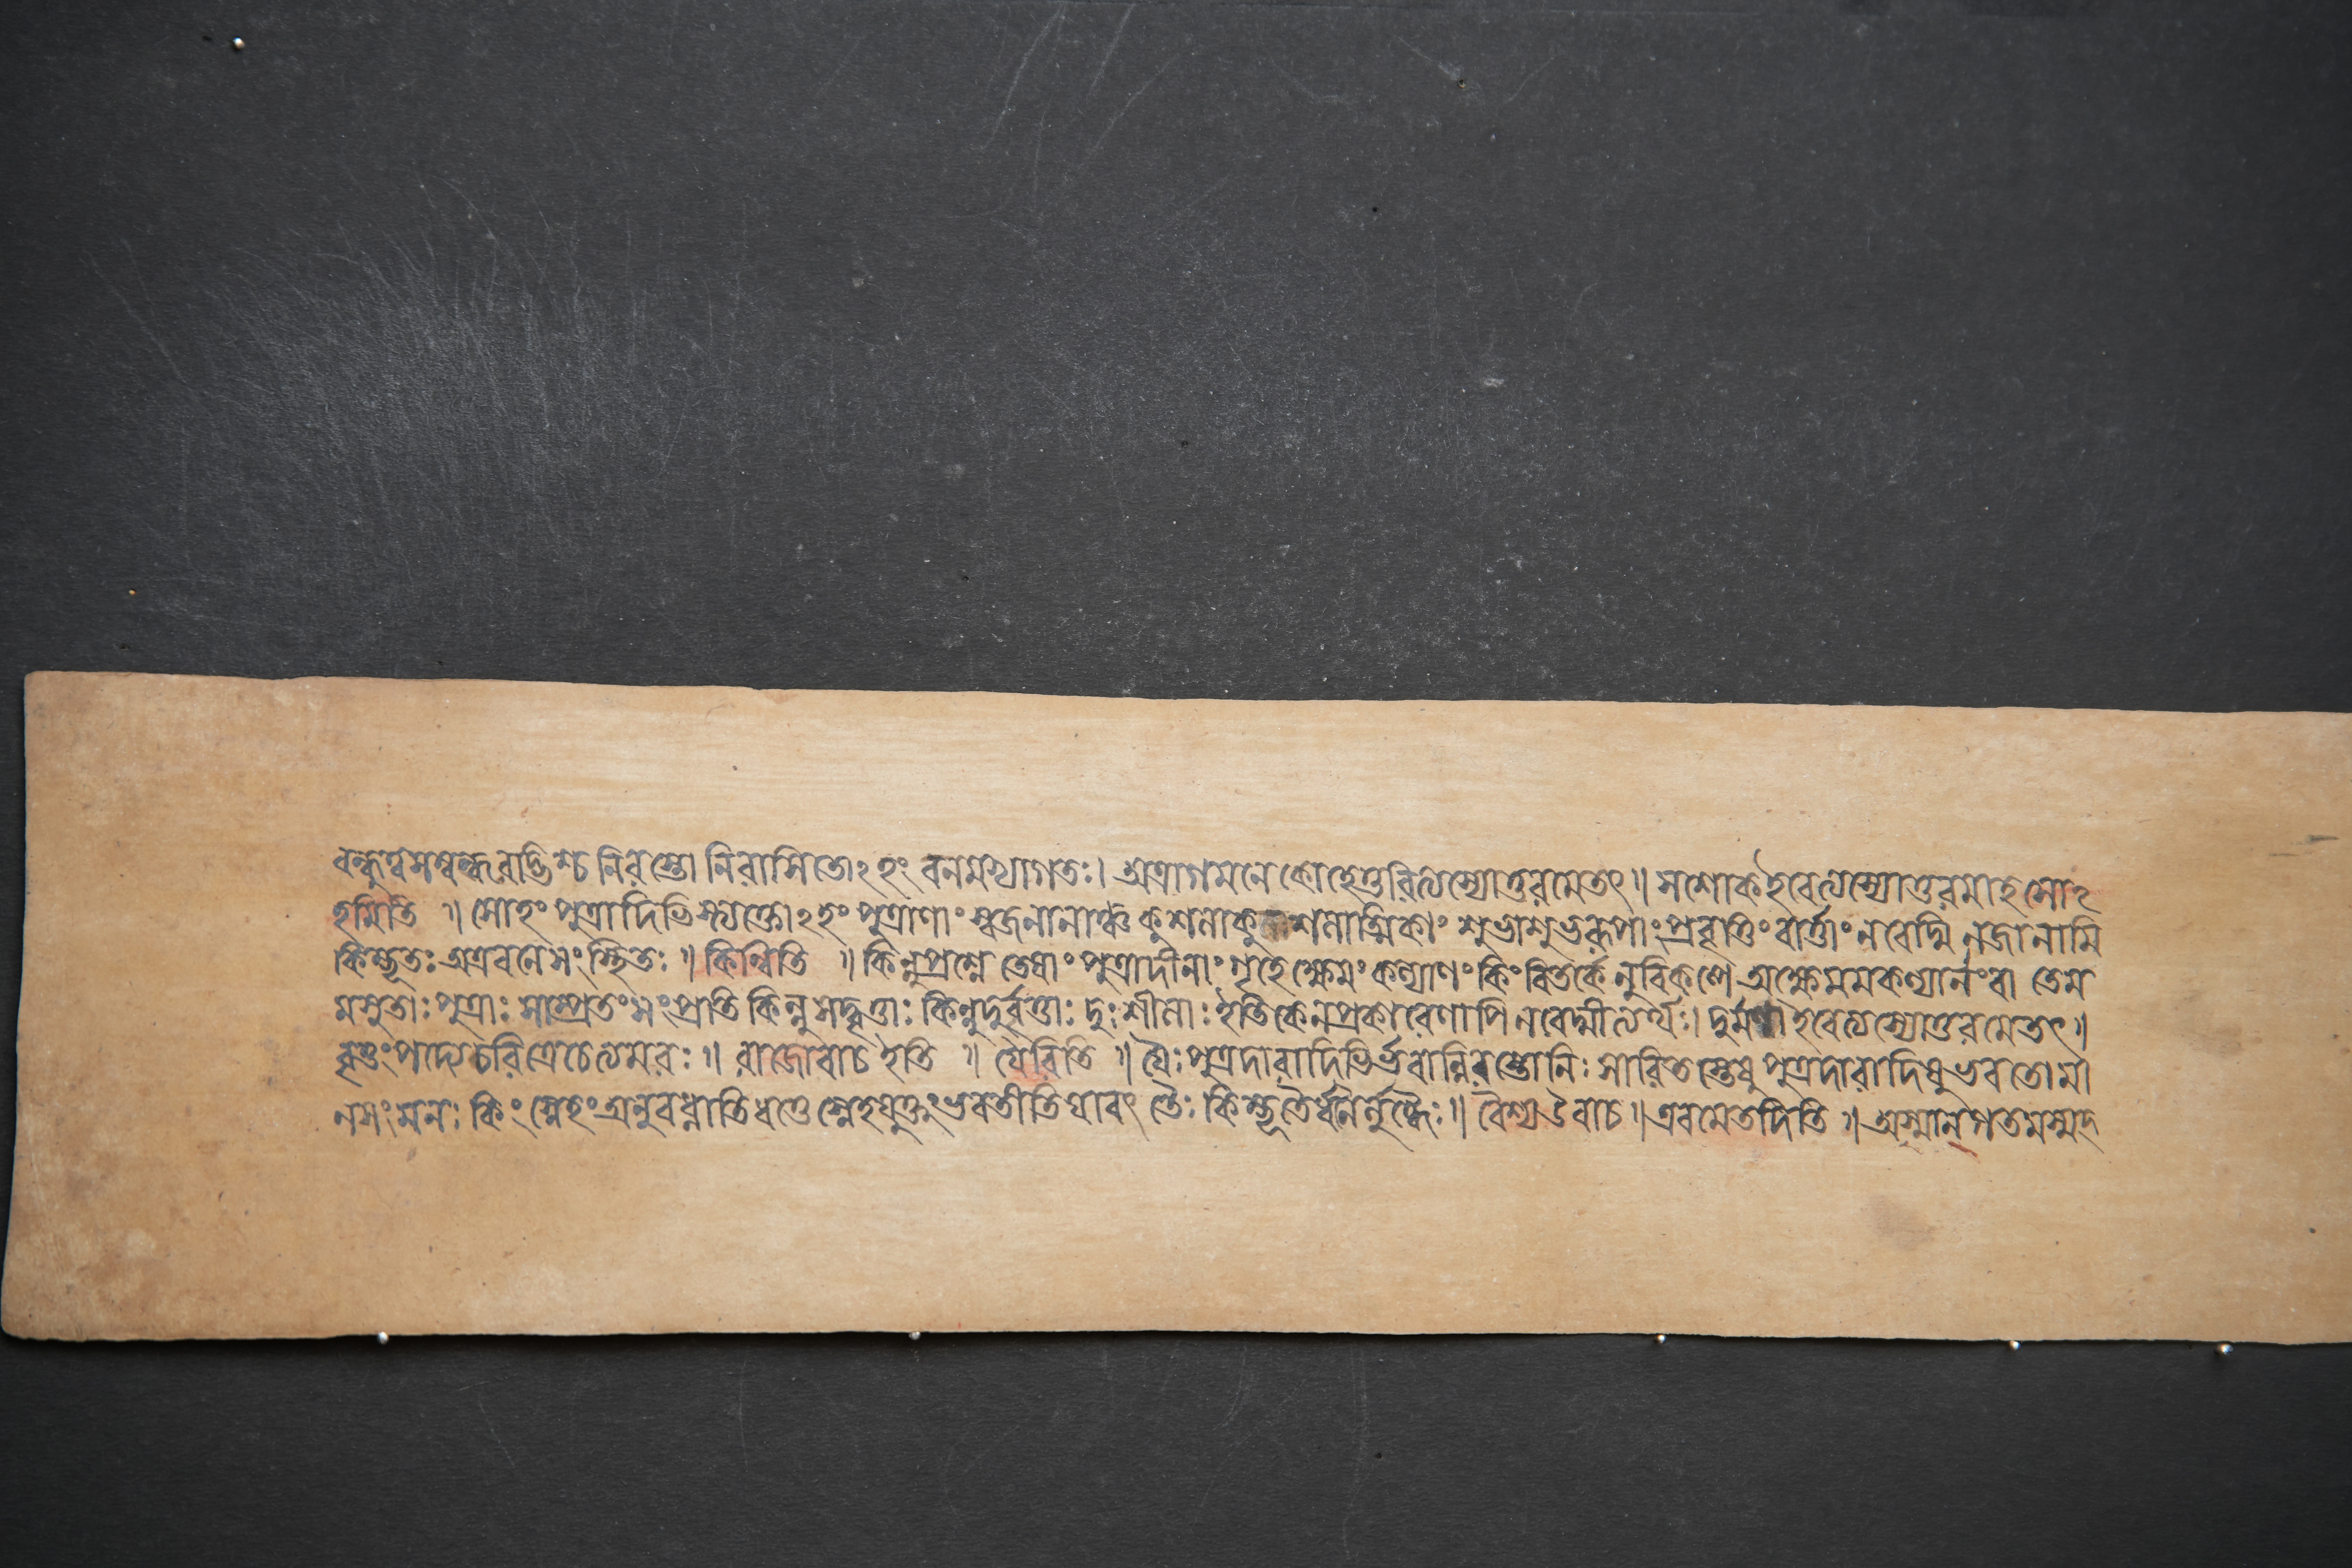 বন্ধুত্বসম্বন্ধবদ্ভিশ্চ নিরস্তো নিরাসিতোঽহং বনমভ্যাগতঃ। অত্রাগমনে কোহেতুরিত্যস্যোত্তরমেতৎ॥ সশোকইবেত্যস্যোত্তরমাহ সোঽ
হমিতি ॥ সোহং পুত্রাদিভিস্ত্যক্তোঽহং পুত্রাণাং স্বজনানাঞ্চ কুশলাকুশলাত্মিকাং শুভাশুভরূপাং প্রবৃত্তিং বার্ত্তাং নবেদ্মি নজানামি
কিম্ভূতঃ অত্রবনে সংস্থিতঃ ॥ কিন্বিতি ॥ কিন্নুপ্রশ্নে তেষাং পুত্রাদীনাং গৃহে ক্ষেমং কল্যাণং কিং বিতর্কে নুবিকল্পে অক্ষেমমকল্যানং বা তেম
মসুতাঃ পুত্রাঃ সাম্প্রতং সংপ্রতি কিন্নু সদ্বৃত্তাঃ কিন্নুদুর্বৃত্তাঃ দুঃশীলাঃ ইতিকেনপ্রকারেণাপি নবেদ্মীত্যর্থঃ। দুর্ম্মণা ইবেত্যস্যোত্তরমেতৎ॥
বৃত্তং পদ্যেচরিত্রেচেত্যমরঃ ॥ রাজোবাচ ইতি ॥ যৈরিতি ॥ যৈঃ পুত্রদারাদিভির্ভবান্নিরস্তোনিঃসারিতস্তেষু পুত্রদারাদিষু ভবতোমা
নসং মনঃ কিং স্নেহং অনুবধ্নাতি ধত্তে স্নেহযুক্তং ভবতীতিযাবৎ তৈঃ কিম্ভূতৈর্ধনৈর্লুব্ধৈঃ॥ বৈশ্য উবাচ॥ এবমেতদিতি ॥ অস্মানগতমস্মদ